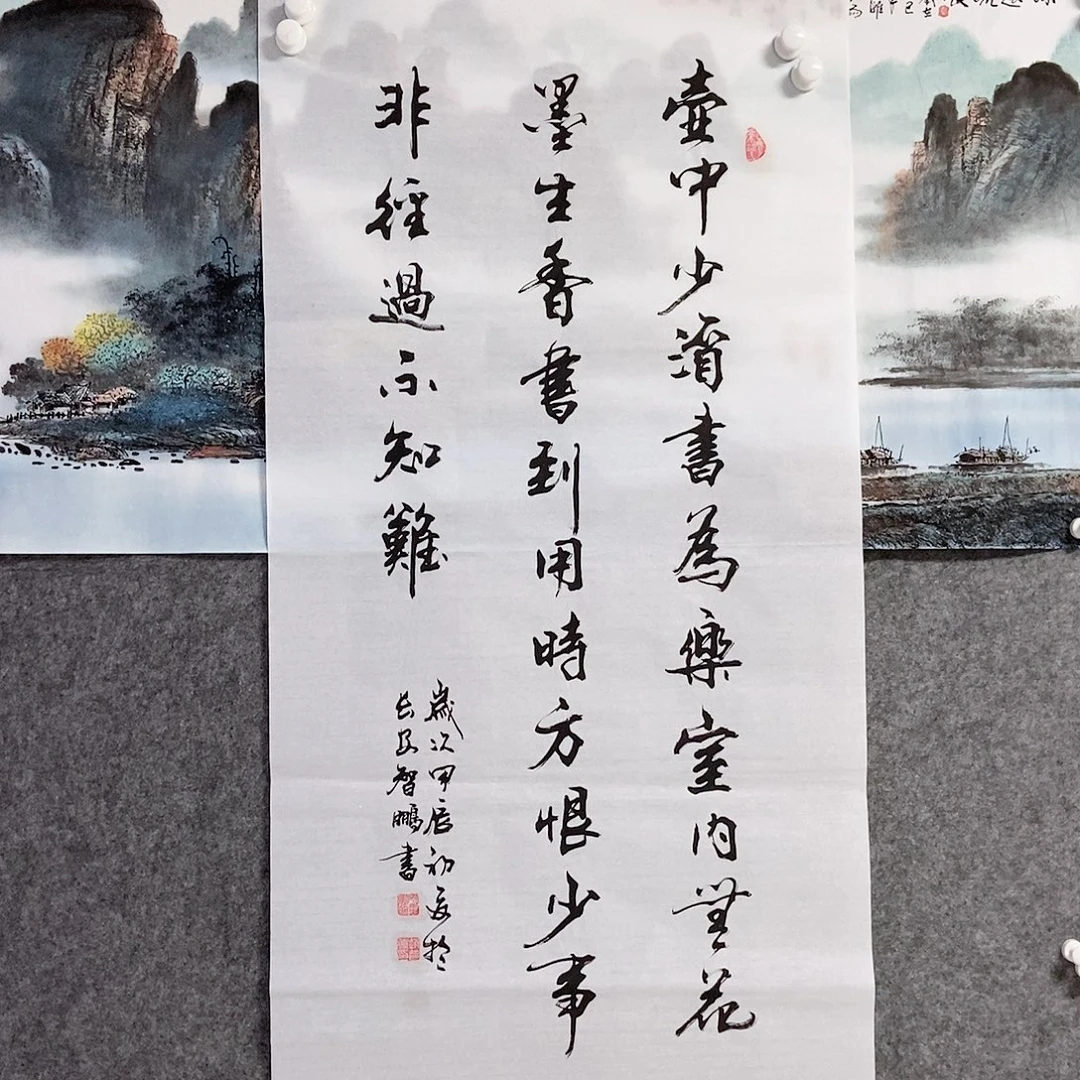 壺中少酒書為樂室内無花
墨生香書到用時方恨少事
非經過不知難
歲次甲辰初夏於
長安智鵬書